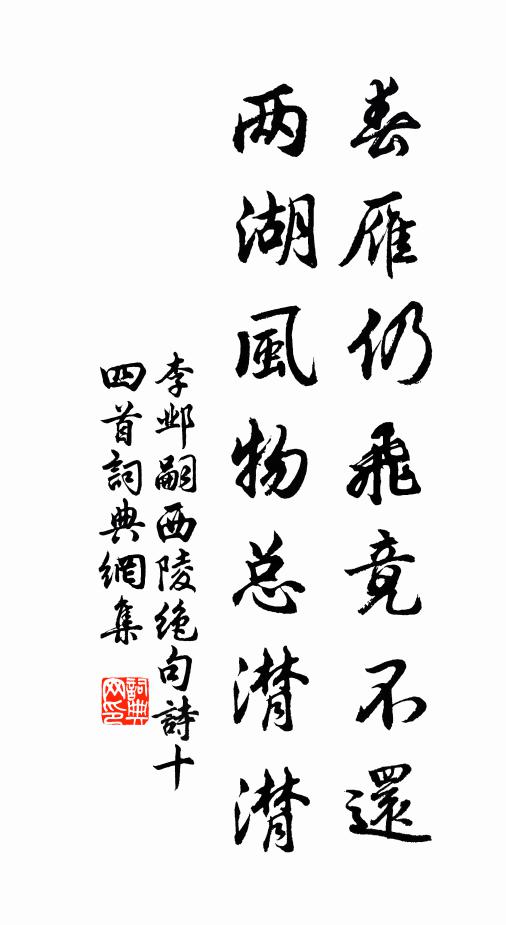 春雁仍飛竟不還
两湖風物总潸潸
李邺嗣西陵绝句詩十
四首詞典網集
詞典
网印